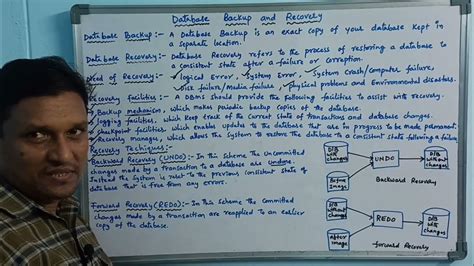 Database Backup and Recovery
Database Backup:- A Database Backup is an exact copy of your database kept in
a separate location.
Database Recovery:- Database Recovery refers to the process of restoring a database to
a consistent state after a failure or corruption.
Need of Recovery:- ✓Logical Error, ✓System Error, ✓System Crash/computer failure,
✓Disk failure/Media failure, ✓Physical problems and Environmental disasters.
Recovery facilities:- A DBMS should provide the following facilities to assist with recovery.
Backup mechanism, which makes periodic backup copies of the database.
Logging facilities, which keep track of the current state of transactions and database changes.
checkpoint facilities, which enables update to the database that are in progress to be made permanent.
Recovery manager, which allows the system to restore the database to a consistent state following a failure
Recovery Techniques:-
Backward Recovery (UNDO):- In this Scheme the Uncommitted
changes made by a transaction to a database are undone.
Instead the system is reset to the previous consistent state of
database that is free from any errors.
Forward Recovery(REDO):- In this Scheme the Committed
changes made by a transaction are reapplied to an earlier
copy of the database.
DB
with
changes
UNDO
DB
without
changes
Before
Image
Backward Recovery
DB
without
changes
REDO
DB
with
changes
After
image
forward Recovery